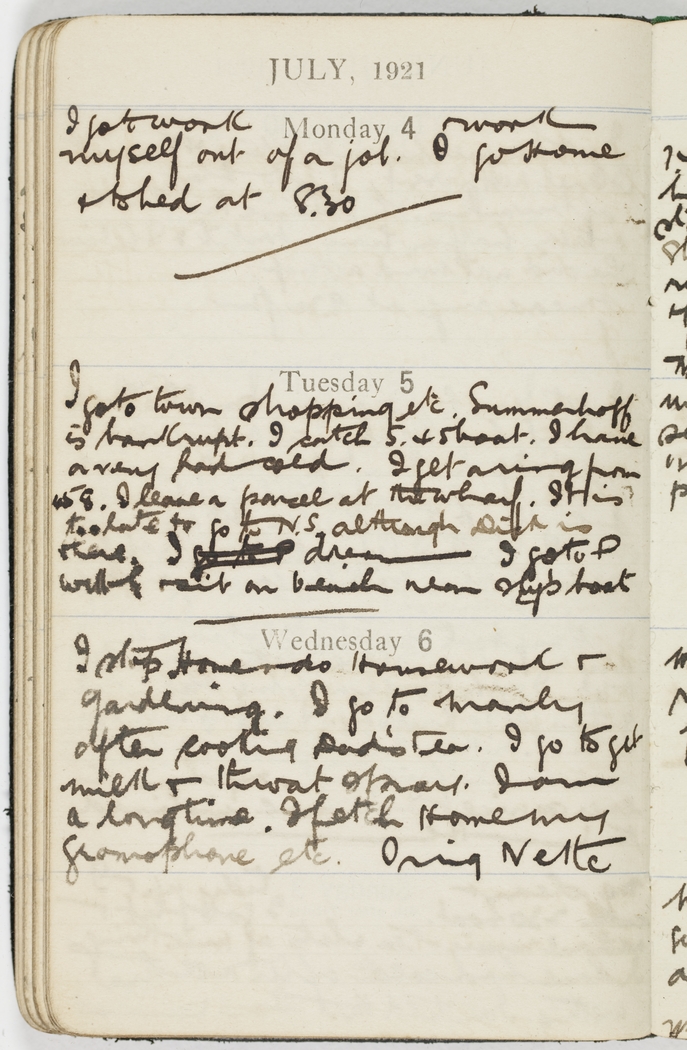 JULY, 1921
Monday 4
I got work & work
myself out of a job. I go Home
& to bed at 8.30
Tuesday 5
I go to town shopping etc. Summerhoff
is bankrupt. I catch 5.45 boat. I have
a very bad cold. I get a ring from
58. I leave a parcel at the wharf. It is
too late to go to N.S. although Dick is
there. I dream I go to P
with & sit on beach near slip boat
Wednesday 6
I stop Home & do Housework &
gardening. I go to Manly
after cooking Dad's tea. I go to get
milk & throat spray. I am
a long time. I fetch Home my
gramophone etc. I ring Nette